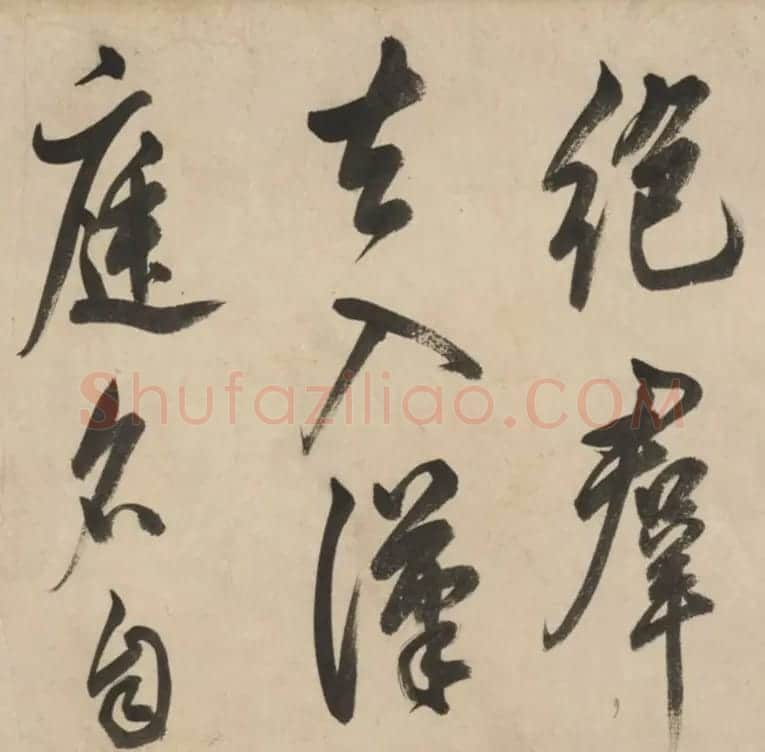 絶羣
去入漢
庭名自
Shufaziliao.COM